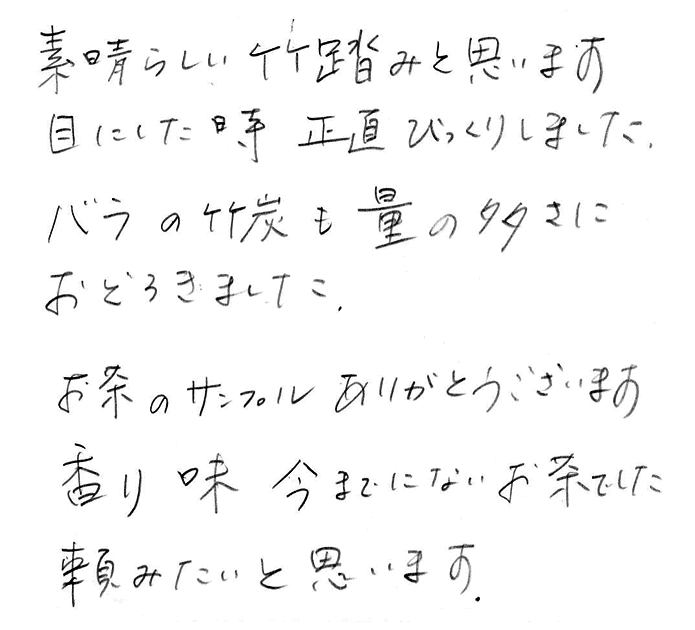 素晴らしい竹踏みと思います
目にした時 正直びっくりしました.
バラの竹炭も量の多さに
おどろきました.
お茶のサンプル ありがとうございます
香り 味 今までにないお茶でした
頼みたいと思います.